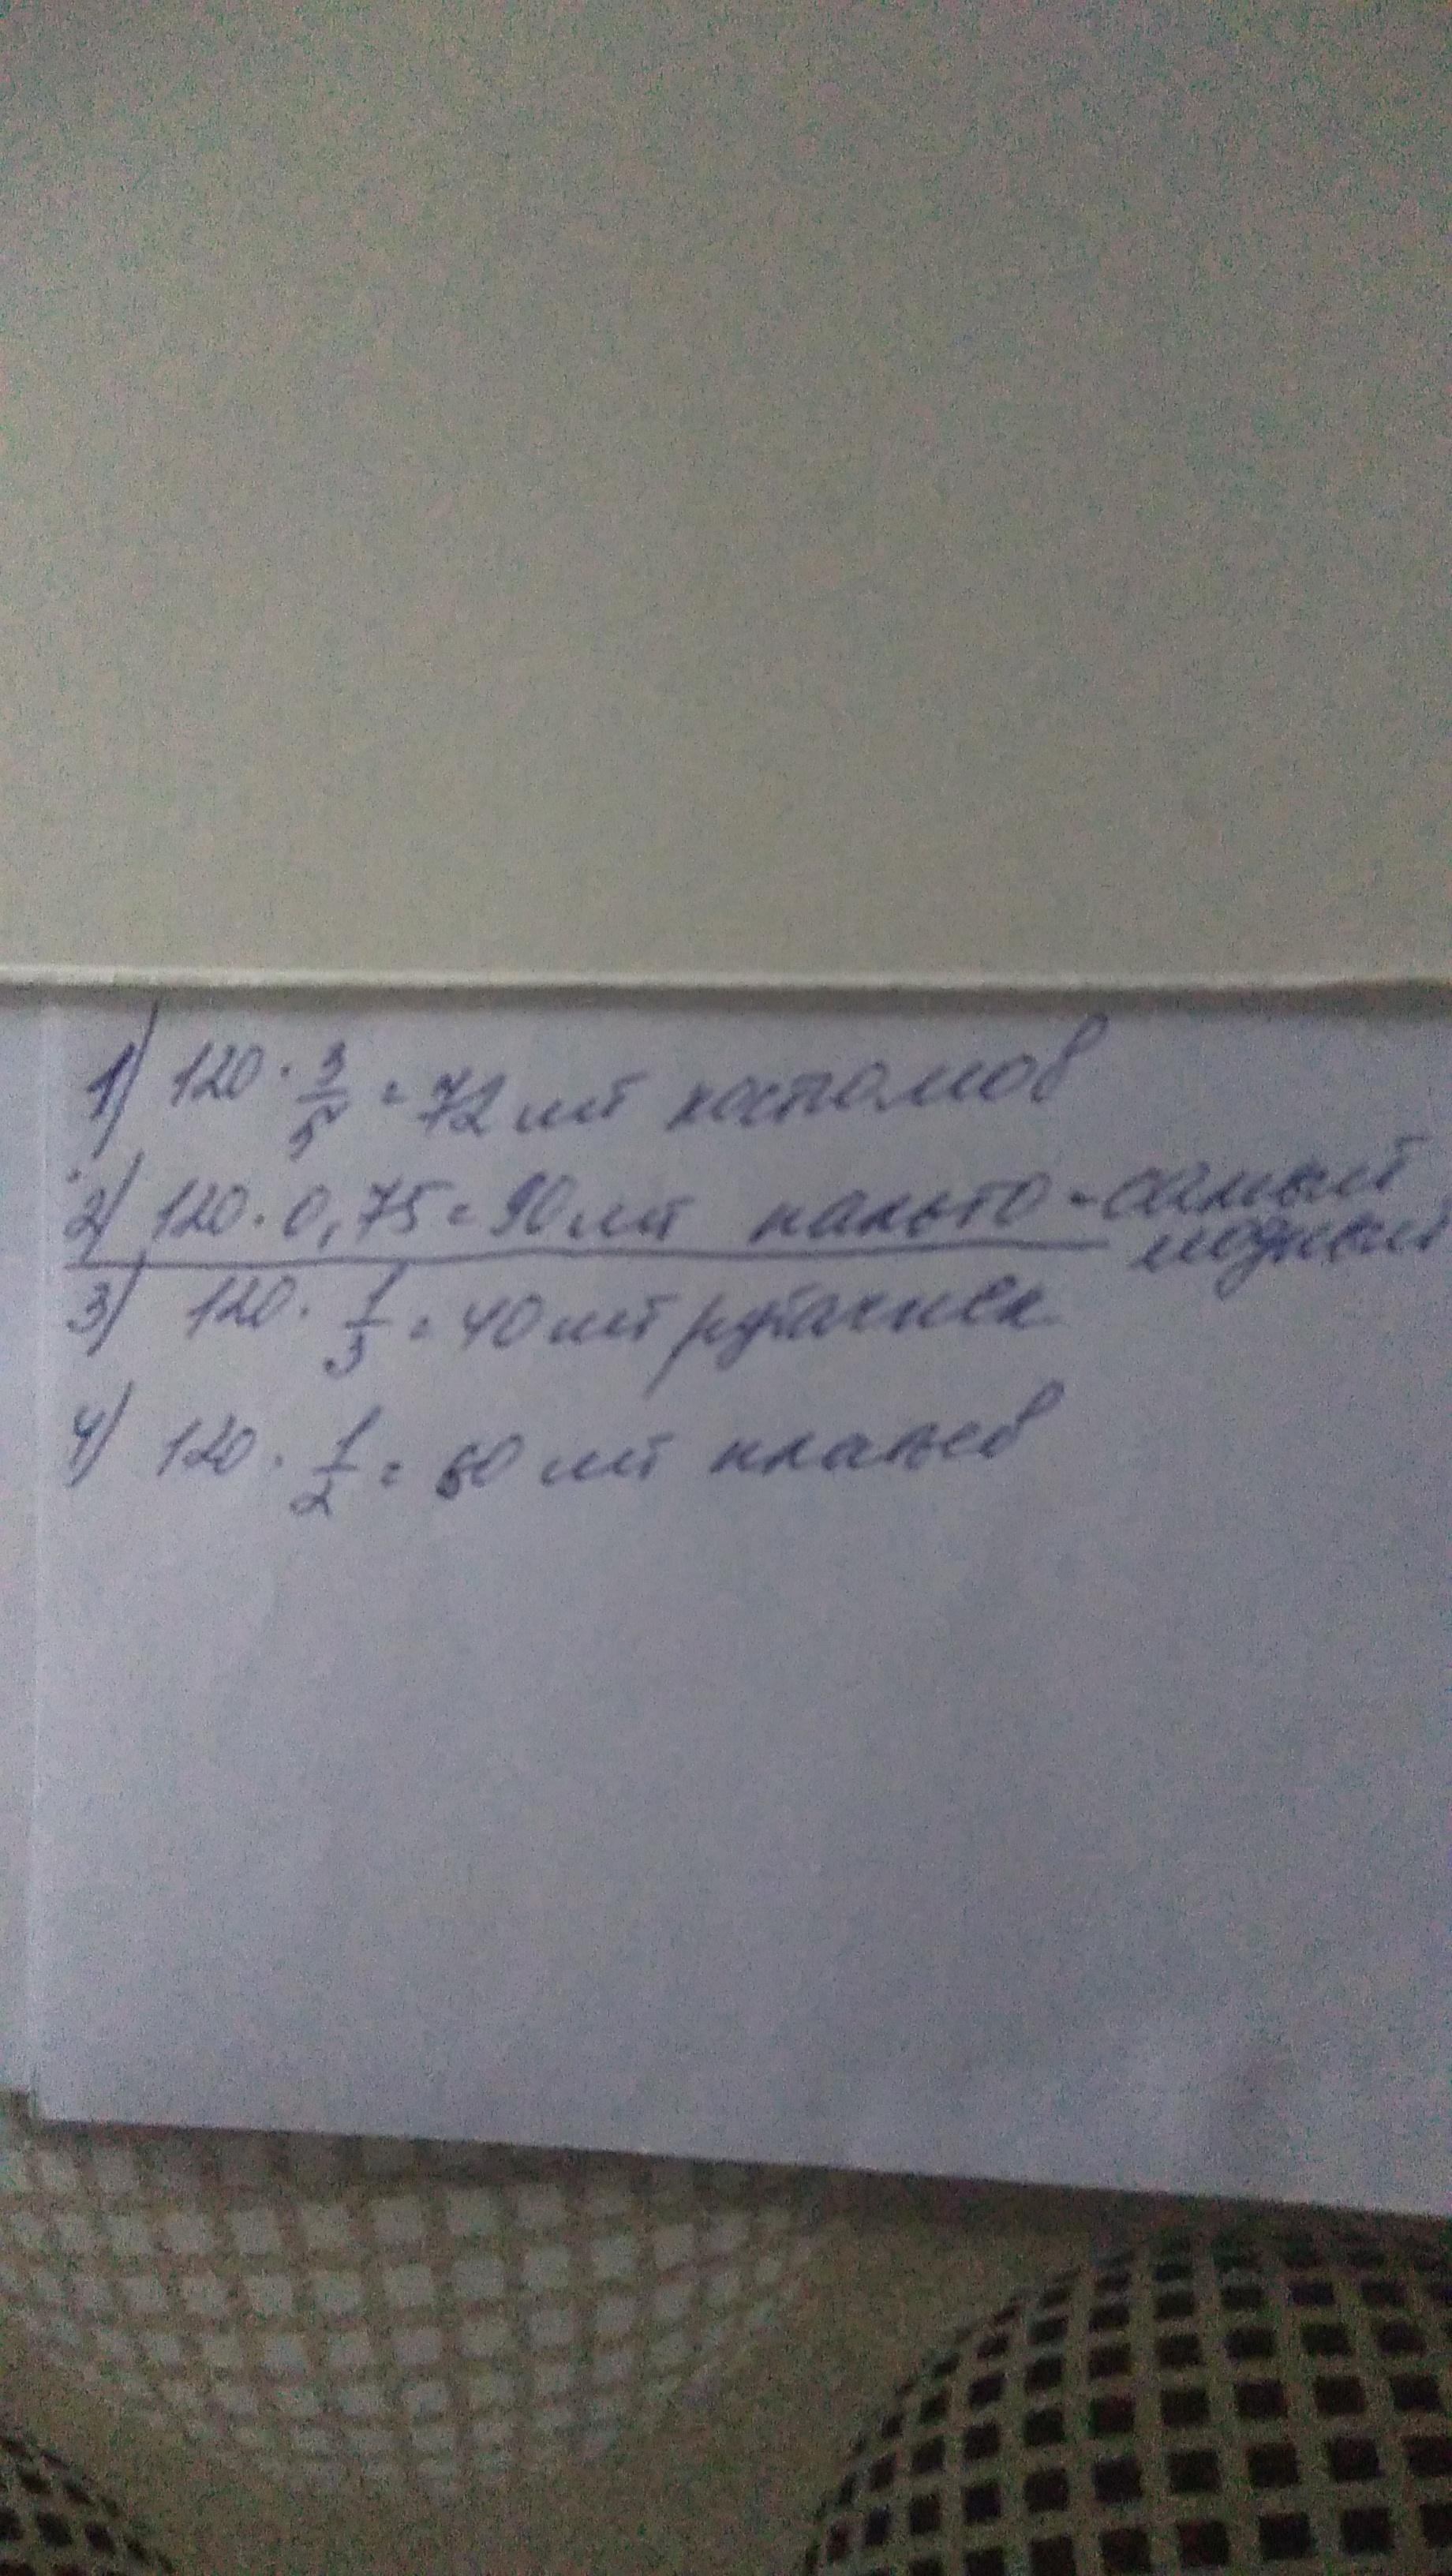 1) 120 · 3/5 = 72 шт костюмов
2) 120 · 0,75 = 90 шт пальто - самый
модный
3) 120 · 1/3 = 40 шт рубашек
4) 120 · 1/2 = 60 шт платьев